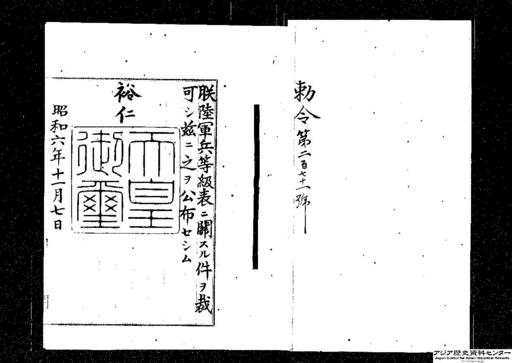 勅令第二百七十一號
朕陸軍兵等級表ニ關スル件ヲ裁
可シ茲ニ之ヲ公布セシム
裕仁
天皇
御璽
昭和六年十一月七日
アジア歴史資料センター
Japan Center for Asian Historical Records